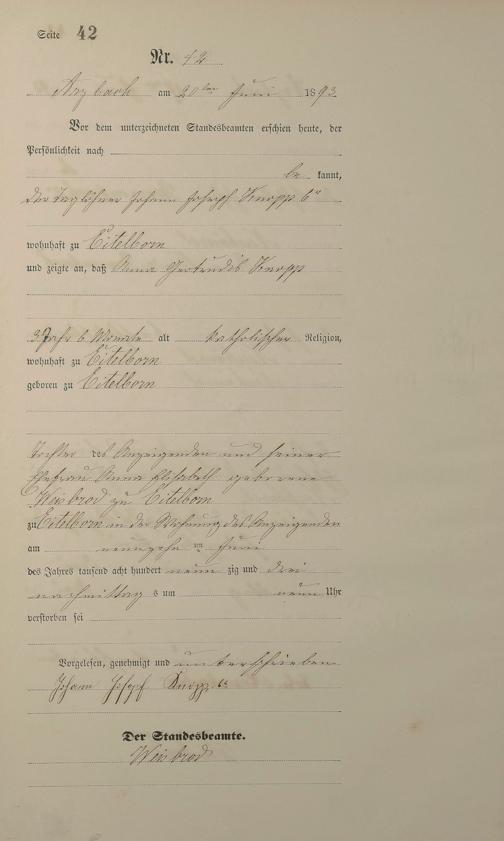 Seite 42
Nr. 42
Arzbach am 20ten Juni 1893
Vor dem unterzeichneten Standesbeamten erschien heute, der
Persönlichkeit nach
be kannt,
der Taglöhner Johann Joseph Knopp 6r
wohnhaft zu Eitelborn
und zeigte an, daß Anna Gertrudis Knopp
3 Jahr 6 Monate alt katholischer Religion,
wohnhaft zu Eitelborn
geboren zu Eitelborn
Tochter des Anzeigenden und seiner
Ehefrau Anna Elisabeth geborene
Weisbrod zu Eitelborn
zu Eitelborn in der Wohnung des Anzeigenden
am neunzehnten Juni
des Jahres tausend acht hundert neun zig und drei
nachmittag s um neun Uhr
verstorben sei
Vorgelesen, genehmigt und unterschrieben
Johann Joseph Knopp 6r
Der Standesbeamte.
Weisbrod